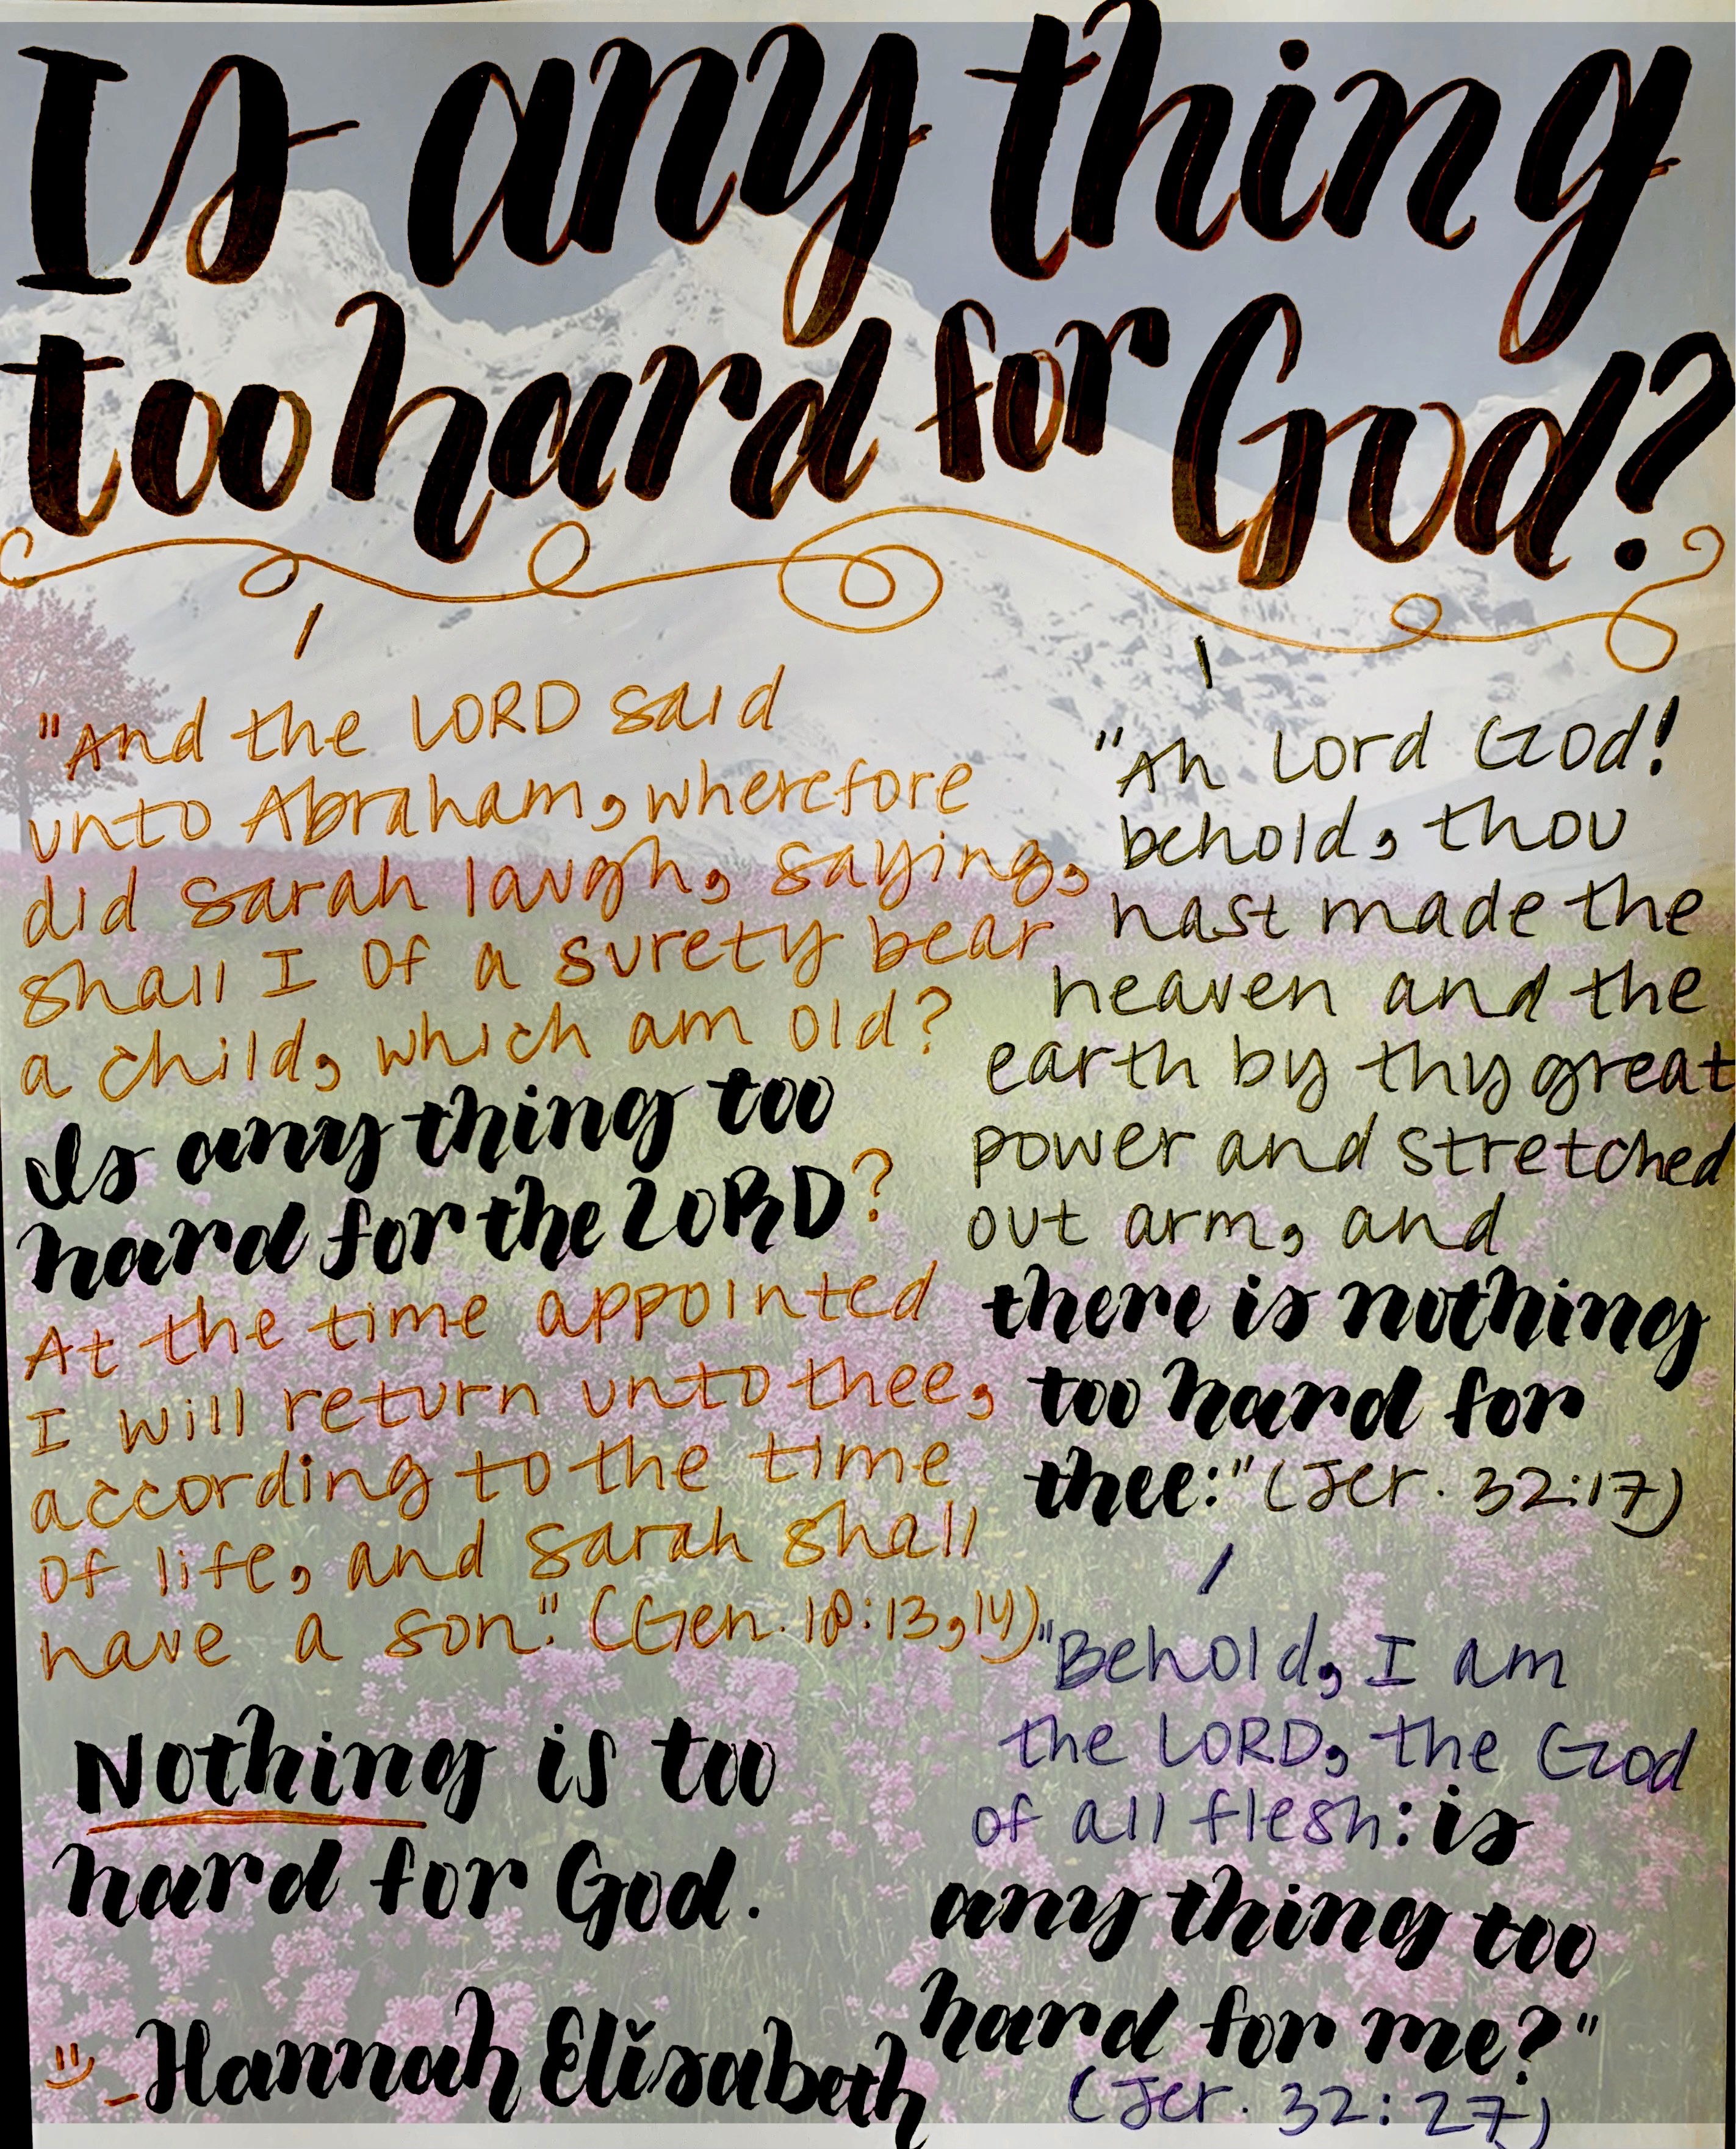 Is any thing
too hard for God?
"And the LORD said
unto Abraham, wherefore
did Sarah laugh, saying,
Shall I of a surety bear
a child, which am old?
Is any thing too
hard for the LORD?
At the time appointed
I will return unto thee,
according to the time
of life, and Sarah shall
have a son." (Gen. 18:13,14)
Nothing is too
hard for God.
=) -Hannah Elisabeth
"Ah Lord God!
behold, thou
hast made the
heaven and the
earth by thy great
power and stretched
out arm, and
there is nothing
too hard for
thee:" (Jer. 32:17)
"Behold, I am
the LORD, the God
of all flesh: is
any thing too
hard for me?"
(Jer. 32:27)